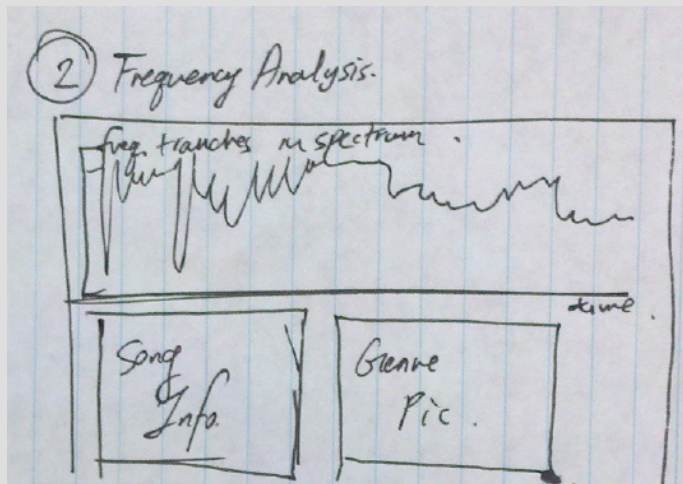 2 Frequency Analysis.
freq. tranches in spectrum.
time.
Song Info.
Genre Pic.